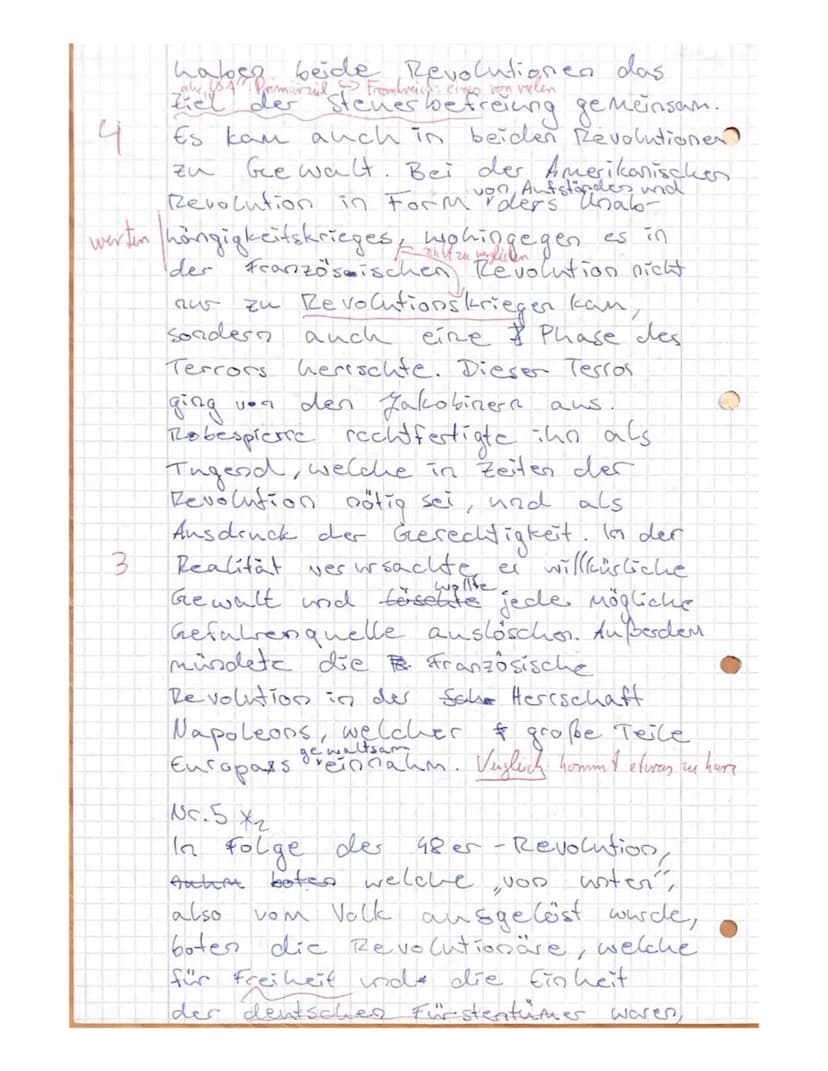 haben beide Revolutionen das
aber USA: Primärziel <-> Frankreich: eines von vielen
Ziel der Steuerbefreiung gemeinsam.
4
Es kam auch in beiden Revolutionen
zu Gewalt. Bei der Amerikanischen
von Aufständen und
Revolution in Form ders Unab-
werten
hängigkeitskrieges, wohingegen es in
nicht zu vergleichen
der Französischen Revolution nicht
nur zu Revolutionskriegen kam,
sondern auch eine Phase des
Terrors herrschte. Dieser Terror
ging von den Jakobinern aus.
Robespierre rechtfertigte ihn als
Tugend, welche in Zeiten der
Revolution nötig sei, und als
Ausdruck der Gerechtigkeit. In der
3
Realität verursachte er willkürliche
wollte
Gewalt und löschte jede mögliche
Gefahrenquelle auslöschen. Außerdem
mündete die Französische
Revolution in der Herrschaft
Napoleons, welcher große Teile
gewaltsam
Europas einnahm. Vergleich kommt etwas zu kurz
Nr.5 *2
In Folge der 48er-Revolution,
boten welche „von unten",
also vom Volk ausgelöst wurde,
boten die Revolutionäre, welche
für Freiheit und die Einheit
der deutschen Fürstentümer waren,